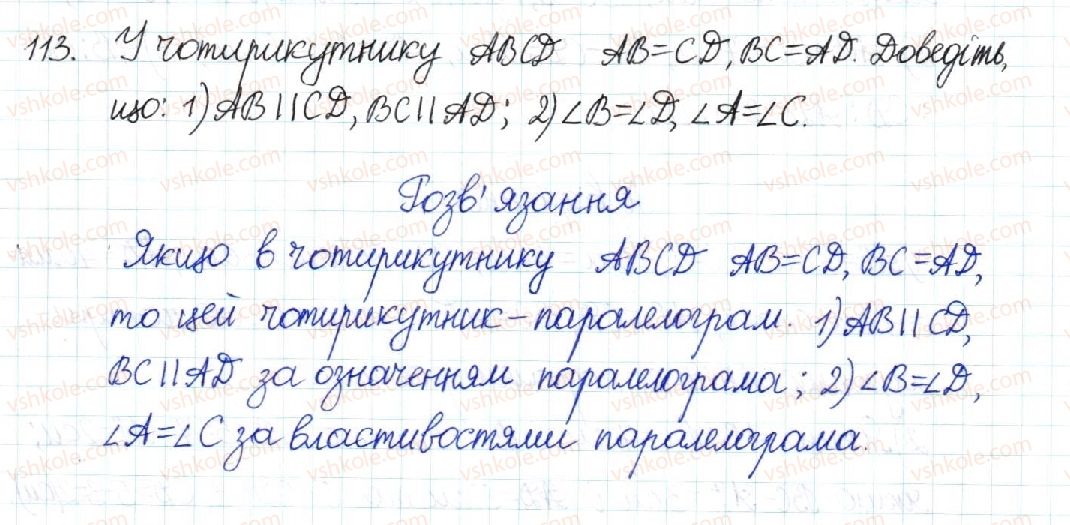 113. У чотирикутнику ABCD AB=CD, BC=AD. Доведіть,
що: 1) AB||CD, BC||AD; 2) ∠B=∠D, ∠A=∠C.
Розв'язання
Якщо в чотирикутнику ABCD AB=CD, BC=AD,
то цей чотирикутник – паралелограм. 1) AB||CD,
BC||AD за означенням паралелограма; 2) ∠B=∠D,
∠A=∠C за властивостями паралелограма.